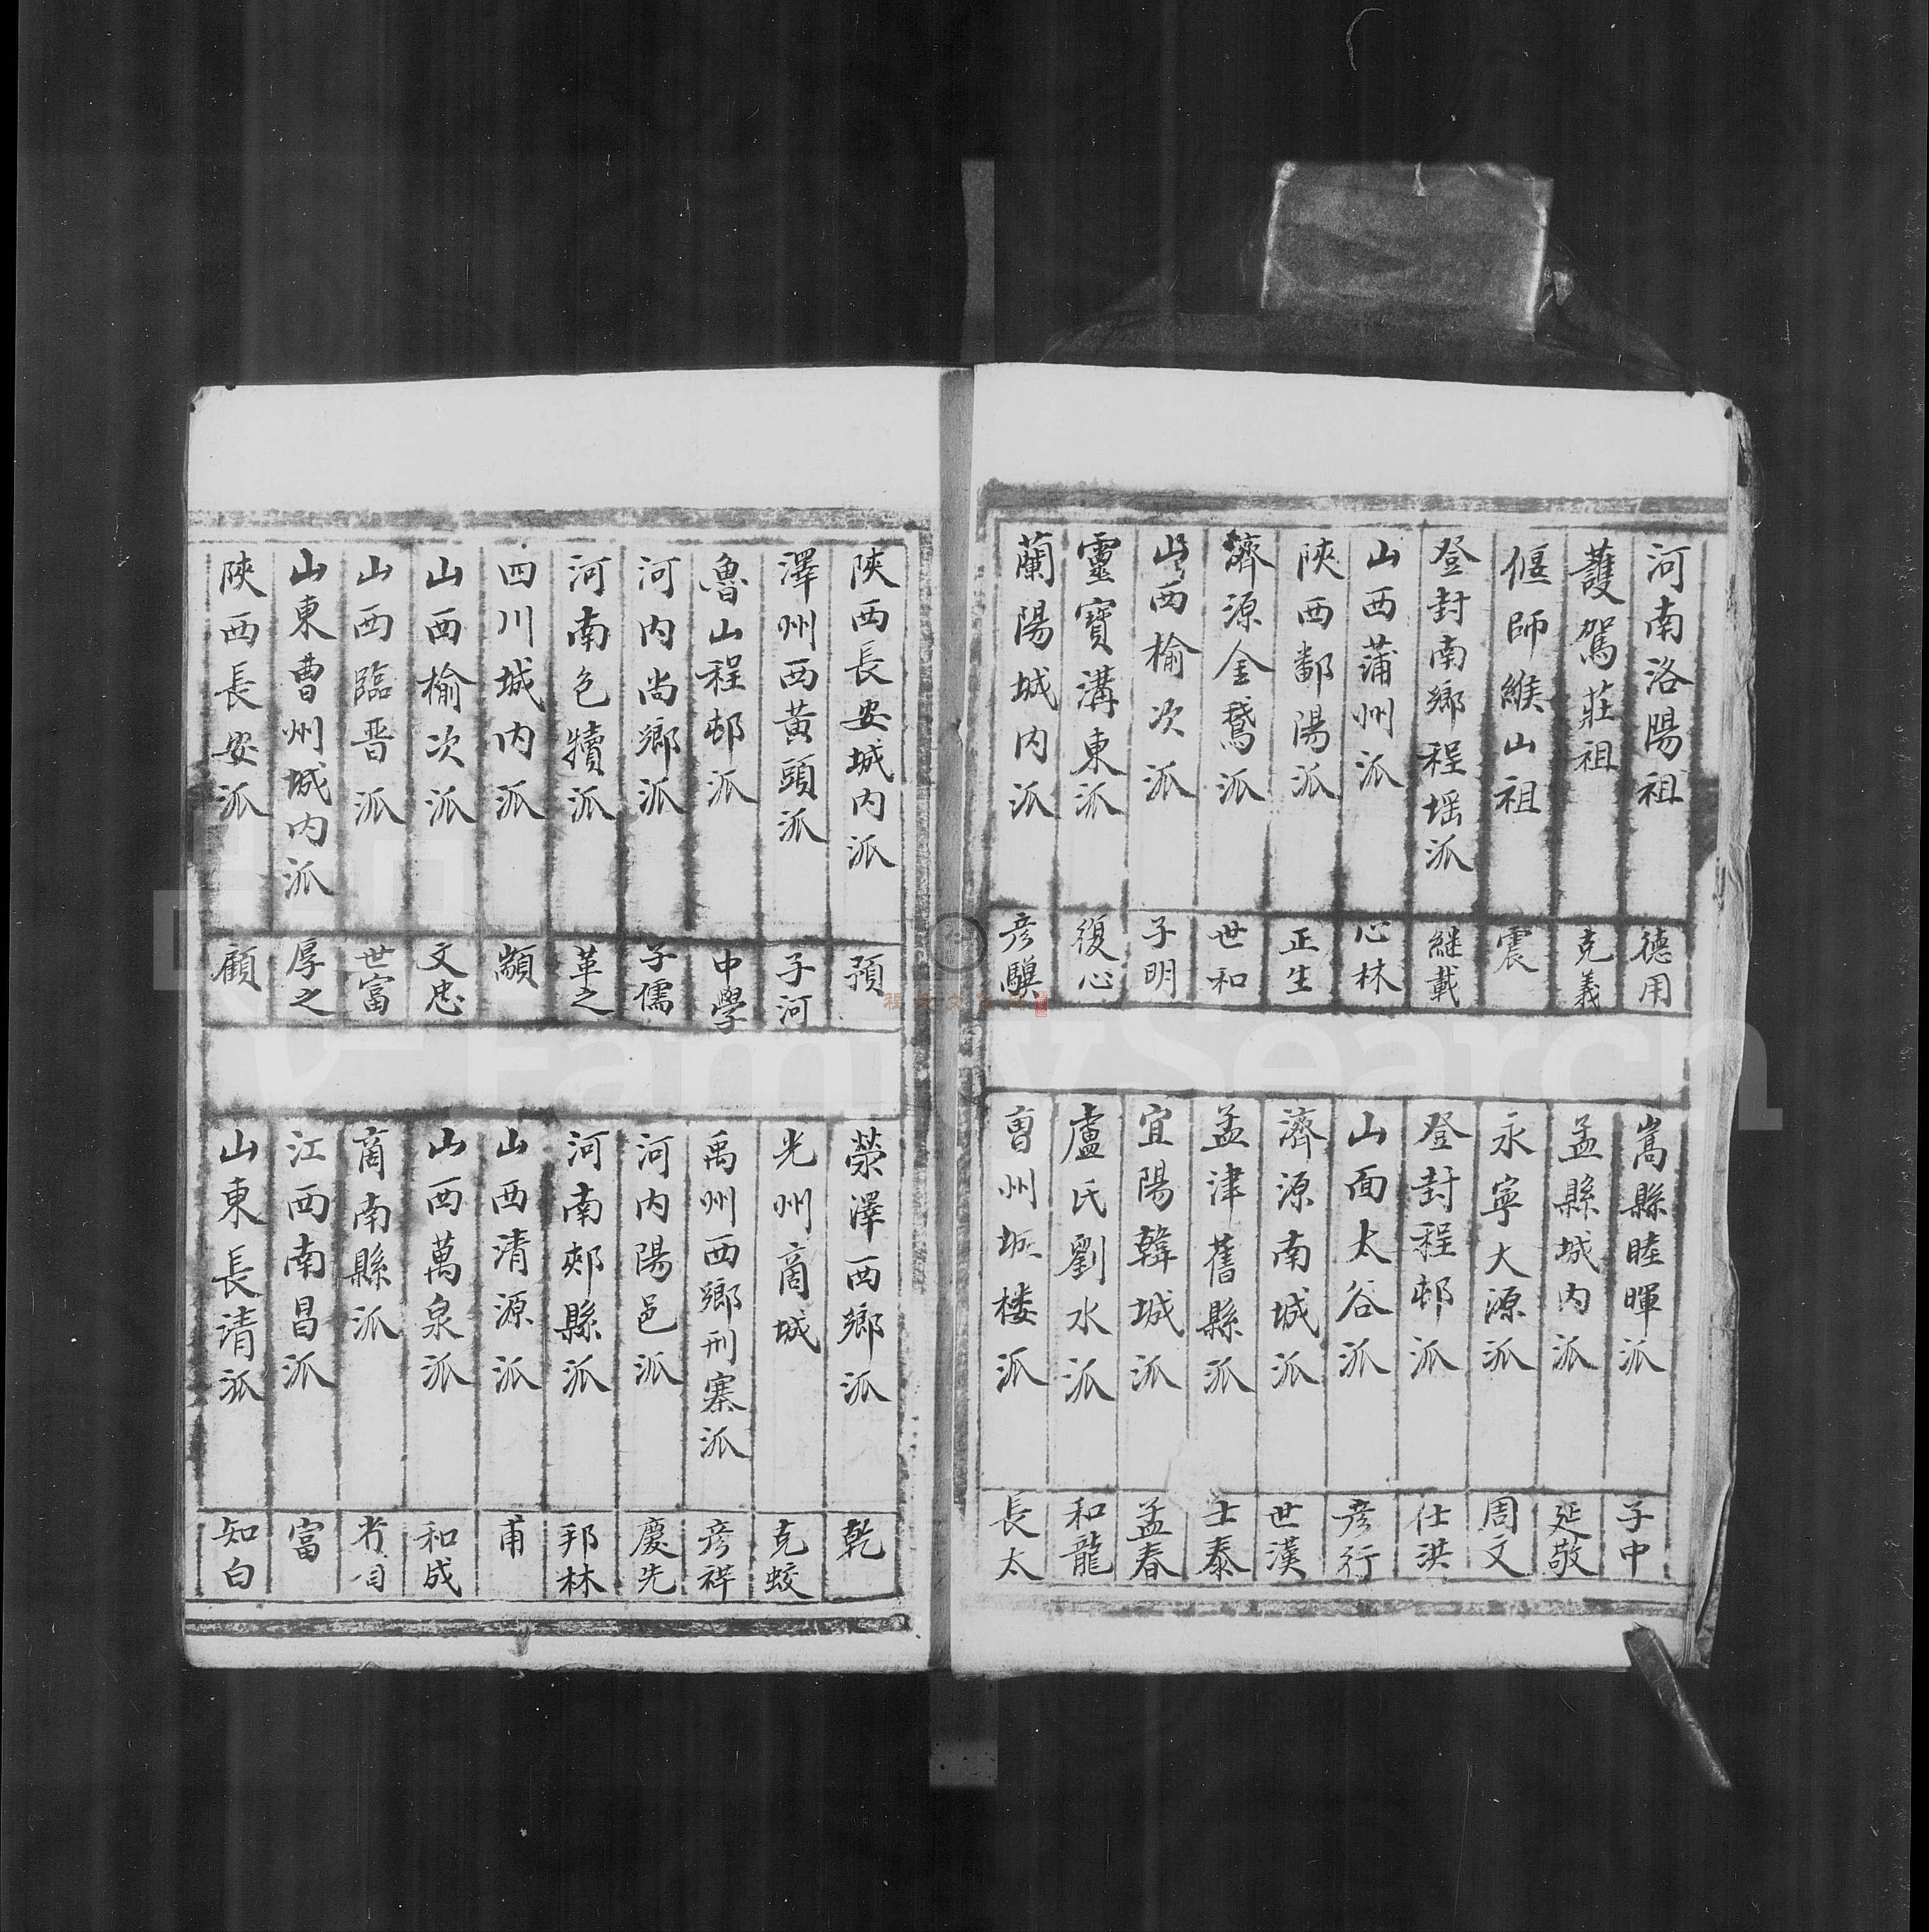 河南洛陽祖　德用
護駕莊祖　克義
偃師緱山祖　震
登封南鄉程堖派　継載
山西蒲州派　心林
陝西鄱陽派　正生
濟源金鵞派　世和
山西榆次派　子明
靈寶溝東派　復心
蘭陽城内派　彦騏
嵩縣睦暉派　子中
孟縣城内派　延敬
永寧大源派　周文
登封程邨派　仕洪
山面太谷派　彦行
濟源南城派　世漢
孟津舊縣派　士泰
宜陽韓城派　孟春
盧氏劉水派　和龍
曹州城楼派　長太
陝西長安城内派　預
澤州西黃頭派　子河
魯山程邨派　中學
河内尚鄉派　子儒
河南色犢派　革之
四川城内派　顓
山西榆次派　文忠
山西臨晋派　世富
山東曹州城内派　厚之
陝西長安派　顧
滎澤西鄉派　乾
光州商城　克蛟
禹州西鄉刑寨派　彦祥
河内陽邑派　慶先
河南郟縣派　邦林
山西清源派　甫
山西萬泉派　和成
商南縣派
江西南昌派　富
山東長清派　知白
FamilySearch